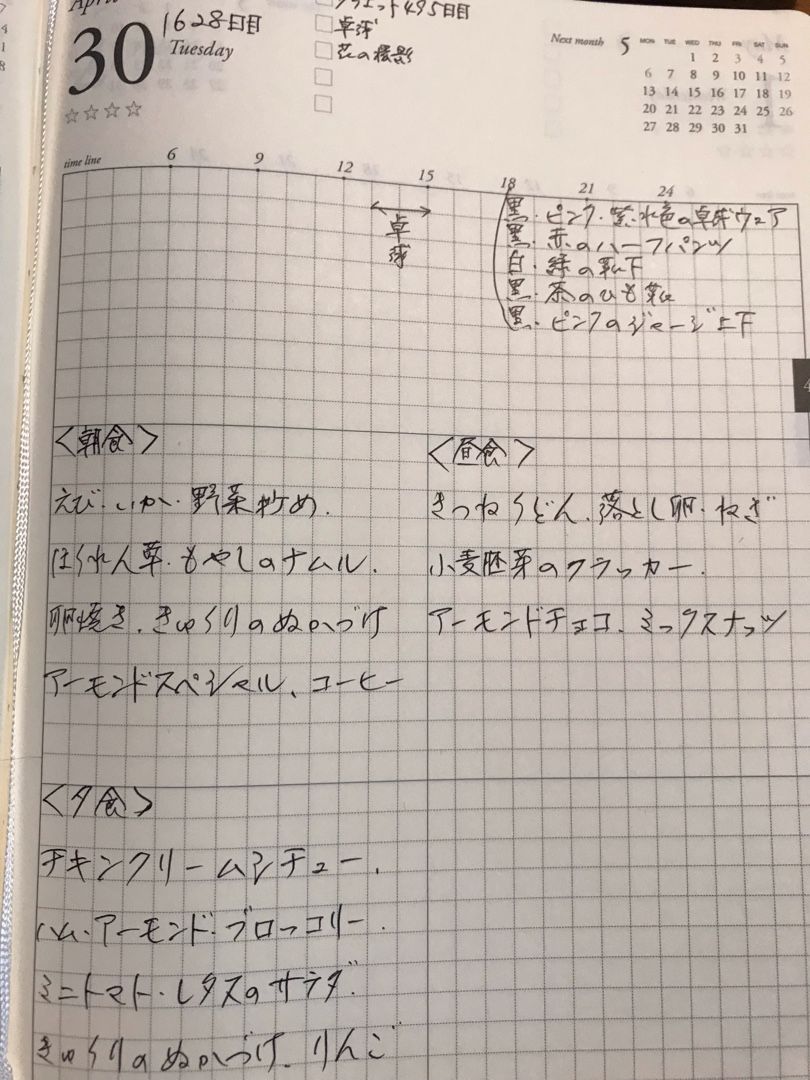 April
30
1628日目
Tuesday
☆☆☆☆
ダイエット495日目
卓球
花の撮影
Next month 5
MON TUE WED THU FRI SAT SUN
1 2 3 4 5
6 7 8 9 10 11 12
13 14 15 16 17 18 19
20 21 22 23 24 25 26
27 28 29 30 31
time line 6 9 12 15 18 21 24
卓球
黒・ピンク・紫・水色の卓球ウェア
黒・赤のハーフパンツ
白・緑の靴下
黒・茶のひも靴
黒・ピンクのジャージ上下
4
<朝食>
えび・いか・野菜炒め、
ほうれん草・もやしのナムル、
卵焼き、きゅうりのぬかづけ
アーモンドスペシャル、コーヒー
<昼食>
きつねうどん、落とし卵・ねぎ
小麦胚芽のクラッカー、
アーモンドチョコ、ミックスナッツ
<夕食>
チキンクリームシチュー、
ハム・アーモンド・ブロッコリー・
ミニトマト・レタスのサラダ
きゅうりのぬかづけ、りんご